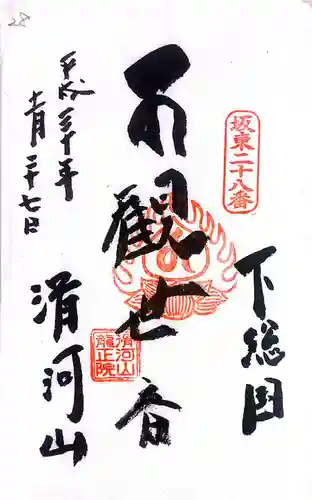 28
坂東二十八番
下総国
聖観世音
滑河山
龍正院
平成三十年
十一月二十七日
滑河山